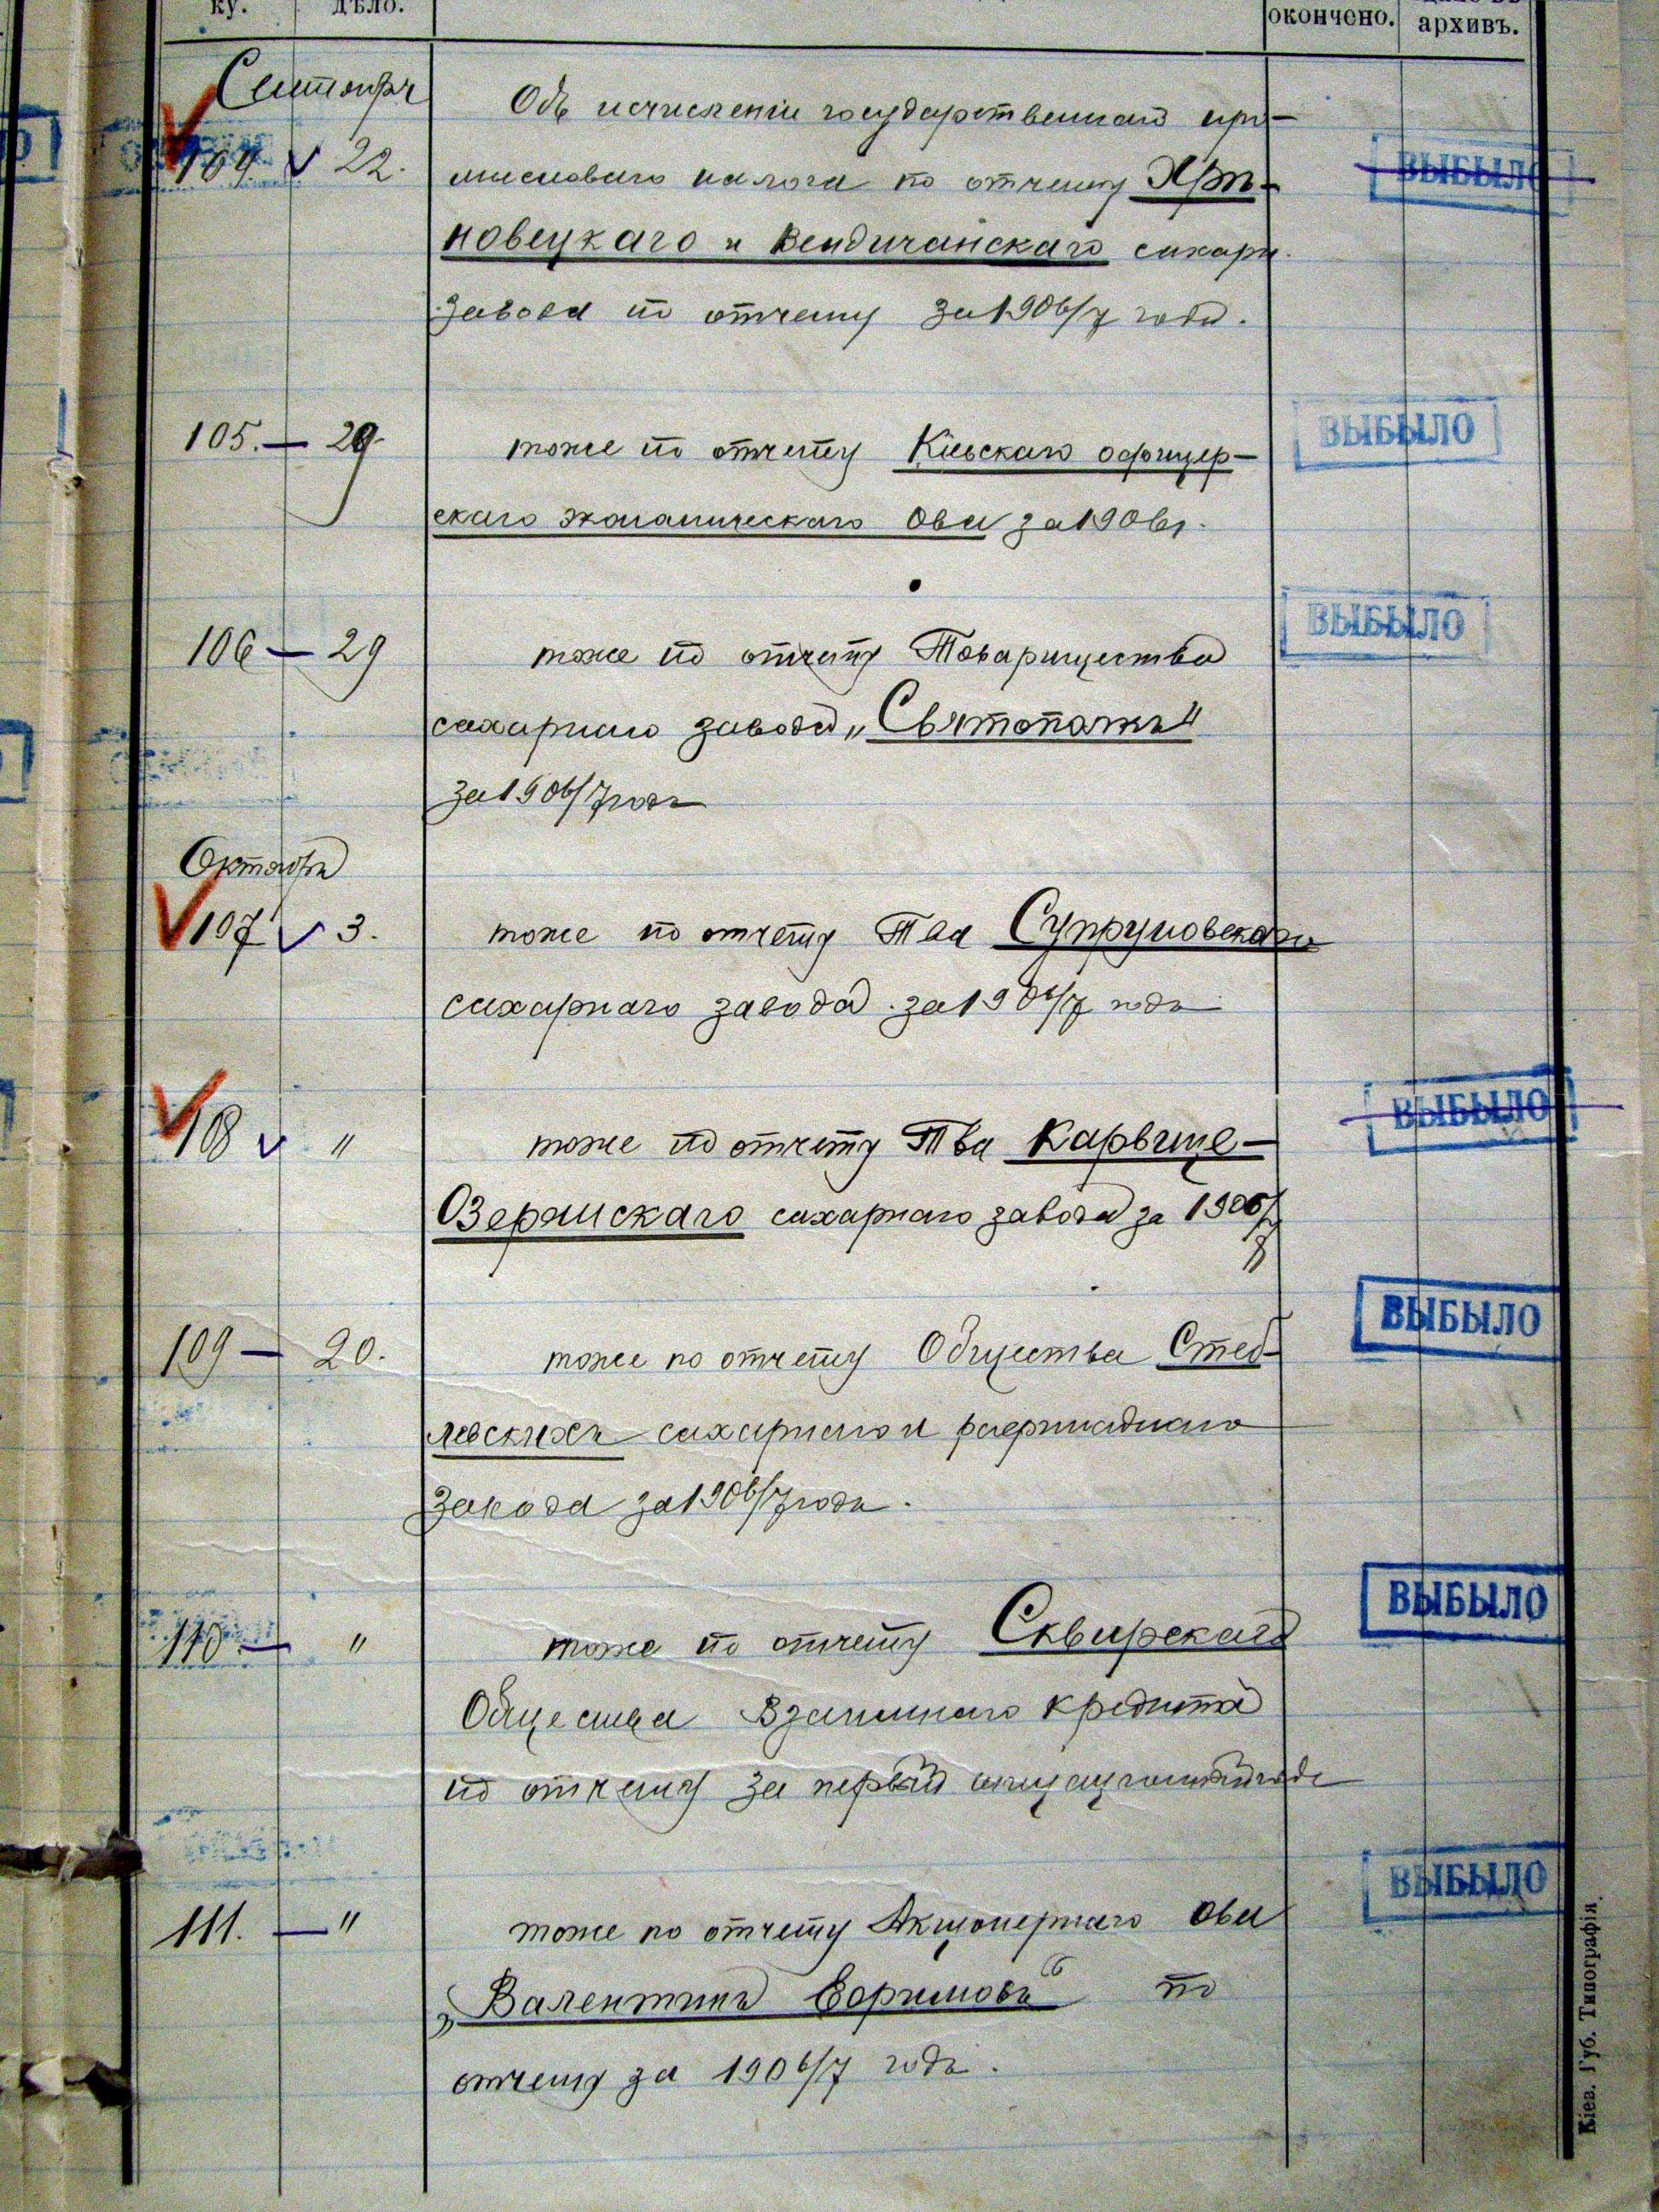 ку. дѣло. окончено. архивъ.
Сентябрь
Объ исчисленіи государственнаго про-
104 22. мысловаго налога по отчету Ярп- ВЫБЫЛО
новецкаго и Вендичанскаго сахарн.
завода по отчету за 1906/7 годъ.
105. — 29. тоже по отчету Кіевскаго офицер- ВЫБЫЛО
скаго экономическаго Ова за 1906 г.
106 — 29 тоже по отчету Товарищества ВЫБЫЛО
сахарнаго завода „Святополкъ"
за 1906/7 годъ
Октябрь
107 3. тоже по отчету Тва Супруновскаго
сахарнаго завода за 1906/7 годъ
108 " тоже по отчету Тва Карвице- ВЫБЫЛО
Озерянскаго сахарнаго завода за 1906/7
109 — 20. тоже по отчету Общества Стеб- ВЫБЫЛО
левскихъ сахарнаго и рафинаднаго
завода за 1906/7 годъ.
110 — " тоже по отчету Сквирскаго ВЫБЫЛО
Общества Взаимнаго кредита
по отчету за первый годъ
111. — " тоже по отчету Акціонернаго Ова ВЫБЫЛО
„Валентинъ Ефимовъ" по
отчету за 1906/7 годъ.
Кіев. Губ. Типографія.